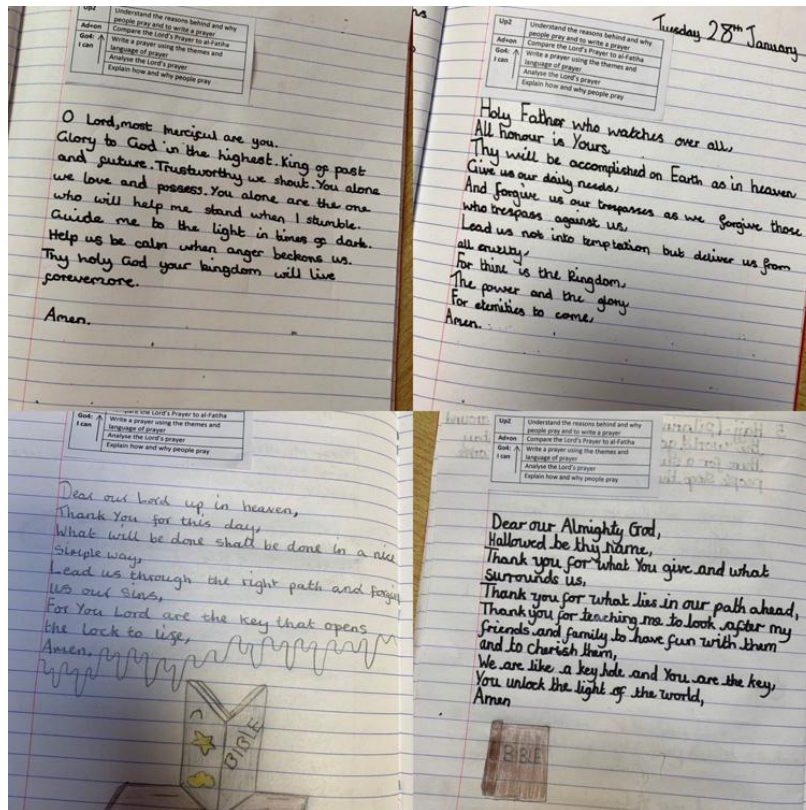 Up2
Understand the reasons behind and why
people pray and to write a prayer
Ad+on
Compare the Lord's Prayer to al-Fatiha
Go4:
I can
Write a prayer using the themes and
language of prayer
Analyse the Lord's prayer
Explain how and why people pray
O Lord, most merciful are you.
Glory to God in the highest. King of past
and future. Trustworthy we shout. You alone
we love and possess. You alone are the one
who will help me stand when I stumble.
Guide me to the light in times of dark.
Help us be calm when anger beckons us.
Thy holy God your kingdom will live
forevermore.
Amen.
Tuesday 28th January
Up2
Understand the reasons behind and why
people pray and to write a prayer
Ad+on
Compare the Lord's Prayer to al-Fatiha
Go4:
I can
Write a prayer using the themes and
language of prayer
Analyse the Lord's prayer
Explain how and why people pray
Holy Father who watches over all,
All honour is Yours,
Thy will be accomplished on Earth as in heaven
Give us our daily needs,
And forgive us our trespasses as we forgive those
who trespass against us,
Lead us not into temptation but deliver us from
all cruelty,
For thine is the Kingdom,
The power and the glory
For eternities to come,
Amen.
Compare the Lord's Prayer to al-Fatiha
Go4:
I can
Write a prayer using the themes and
language of prayer
Analyse the Lord's prayer
Explain how and why people pray
Dear our Lord up in heaven,
Thank You for this day,
What will be done shall be done in a nice
simple way,
Lead us through the right path and forgive
us our sins,
For You Lord are the key that opens
the lock to life,
Amen,
BIBLE
Up2
Understand the reasons behind and why
people pray and to write a prayer
Ad+on
Compare the Lord's Prayer to al-Fatiha
Go4:
I can
Write a prayer using the themes and
language of prayer
Analyse the Lord's prayer
Explain how and why people pray
Dear our Almighty God,
Hallowed be thy name,
Thank you for what You give and what
surrounds us,
Thank you for what lies in our path ahead,
Thank you for teaching me to look after my
friends and family to have fun with them
and to cherish them,
We are like a key hole and You are the key,
You unlock the light of the world,
Amen
BIBLE